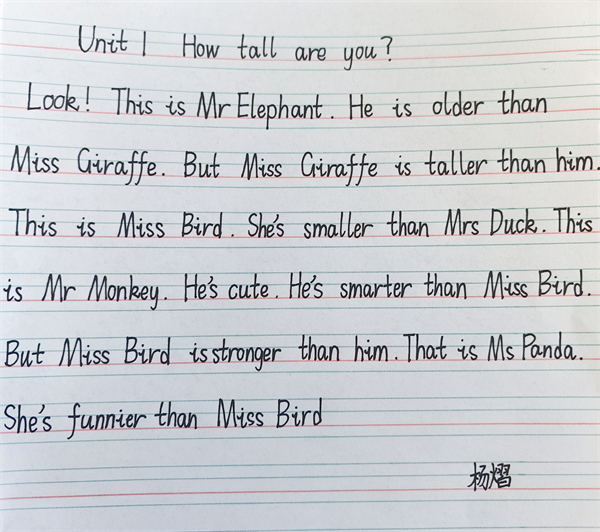 Unit 1 How tall are you?
Look! This is Mr Elephant. He is older than
Miss Giraffe. But Miss Giraffe is taller than him.
This is Miss Bird. She's smaller than Mrs Duck. This
is Mr Monkey. He's cute. He's smarter than Miss Bird.
But Miss Bird is stronger than him. That is Ms Panda.
She's funnier than Miss Bird
杨熠